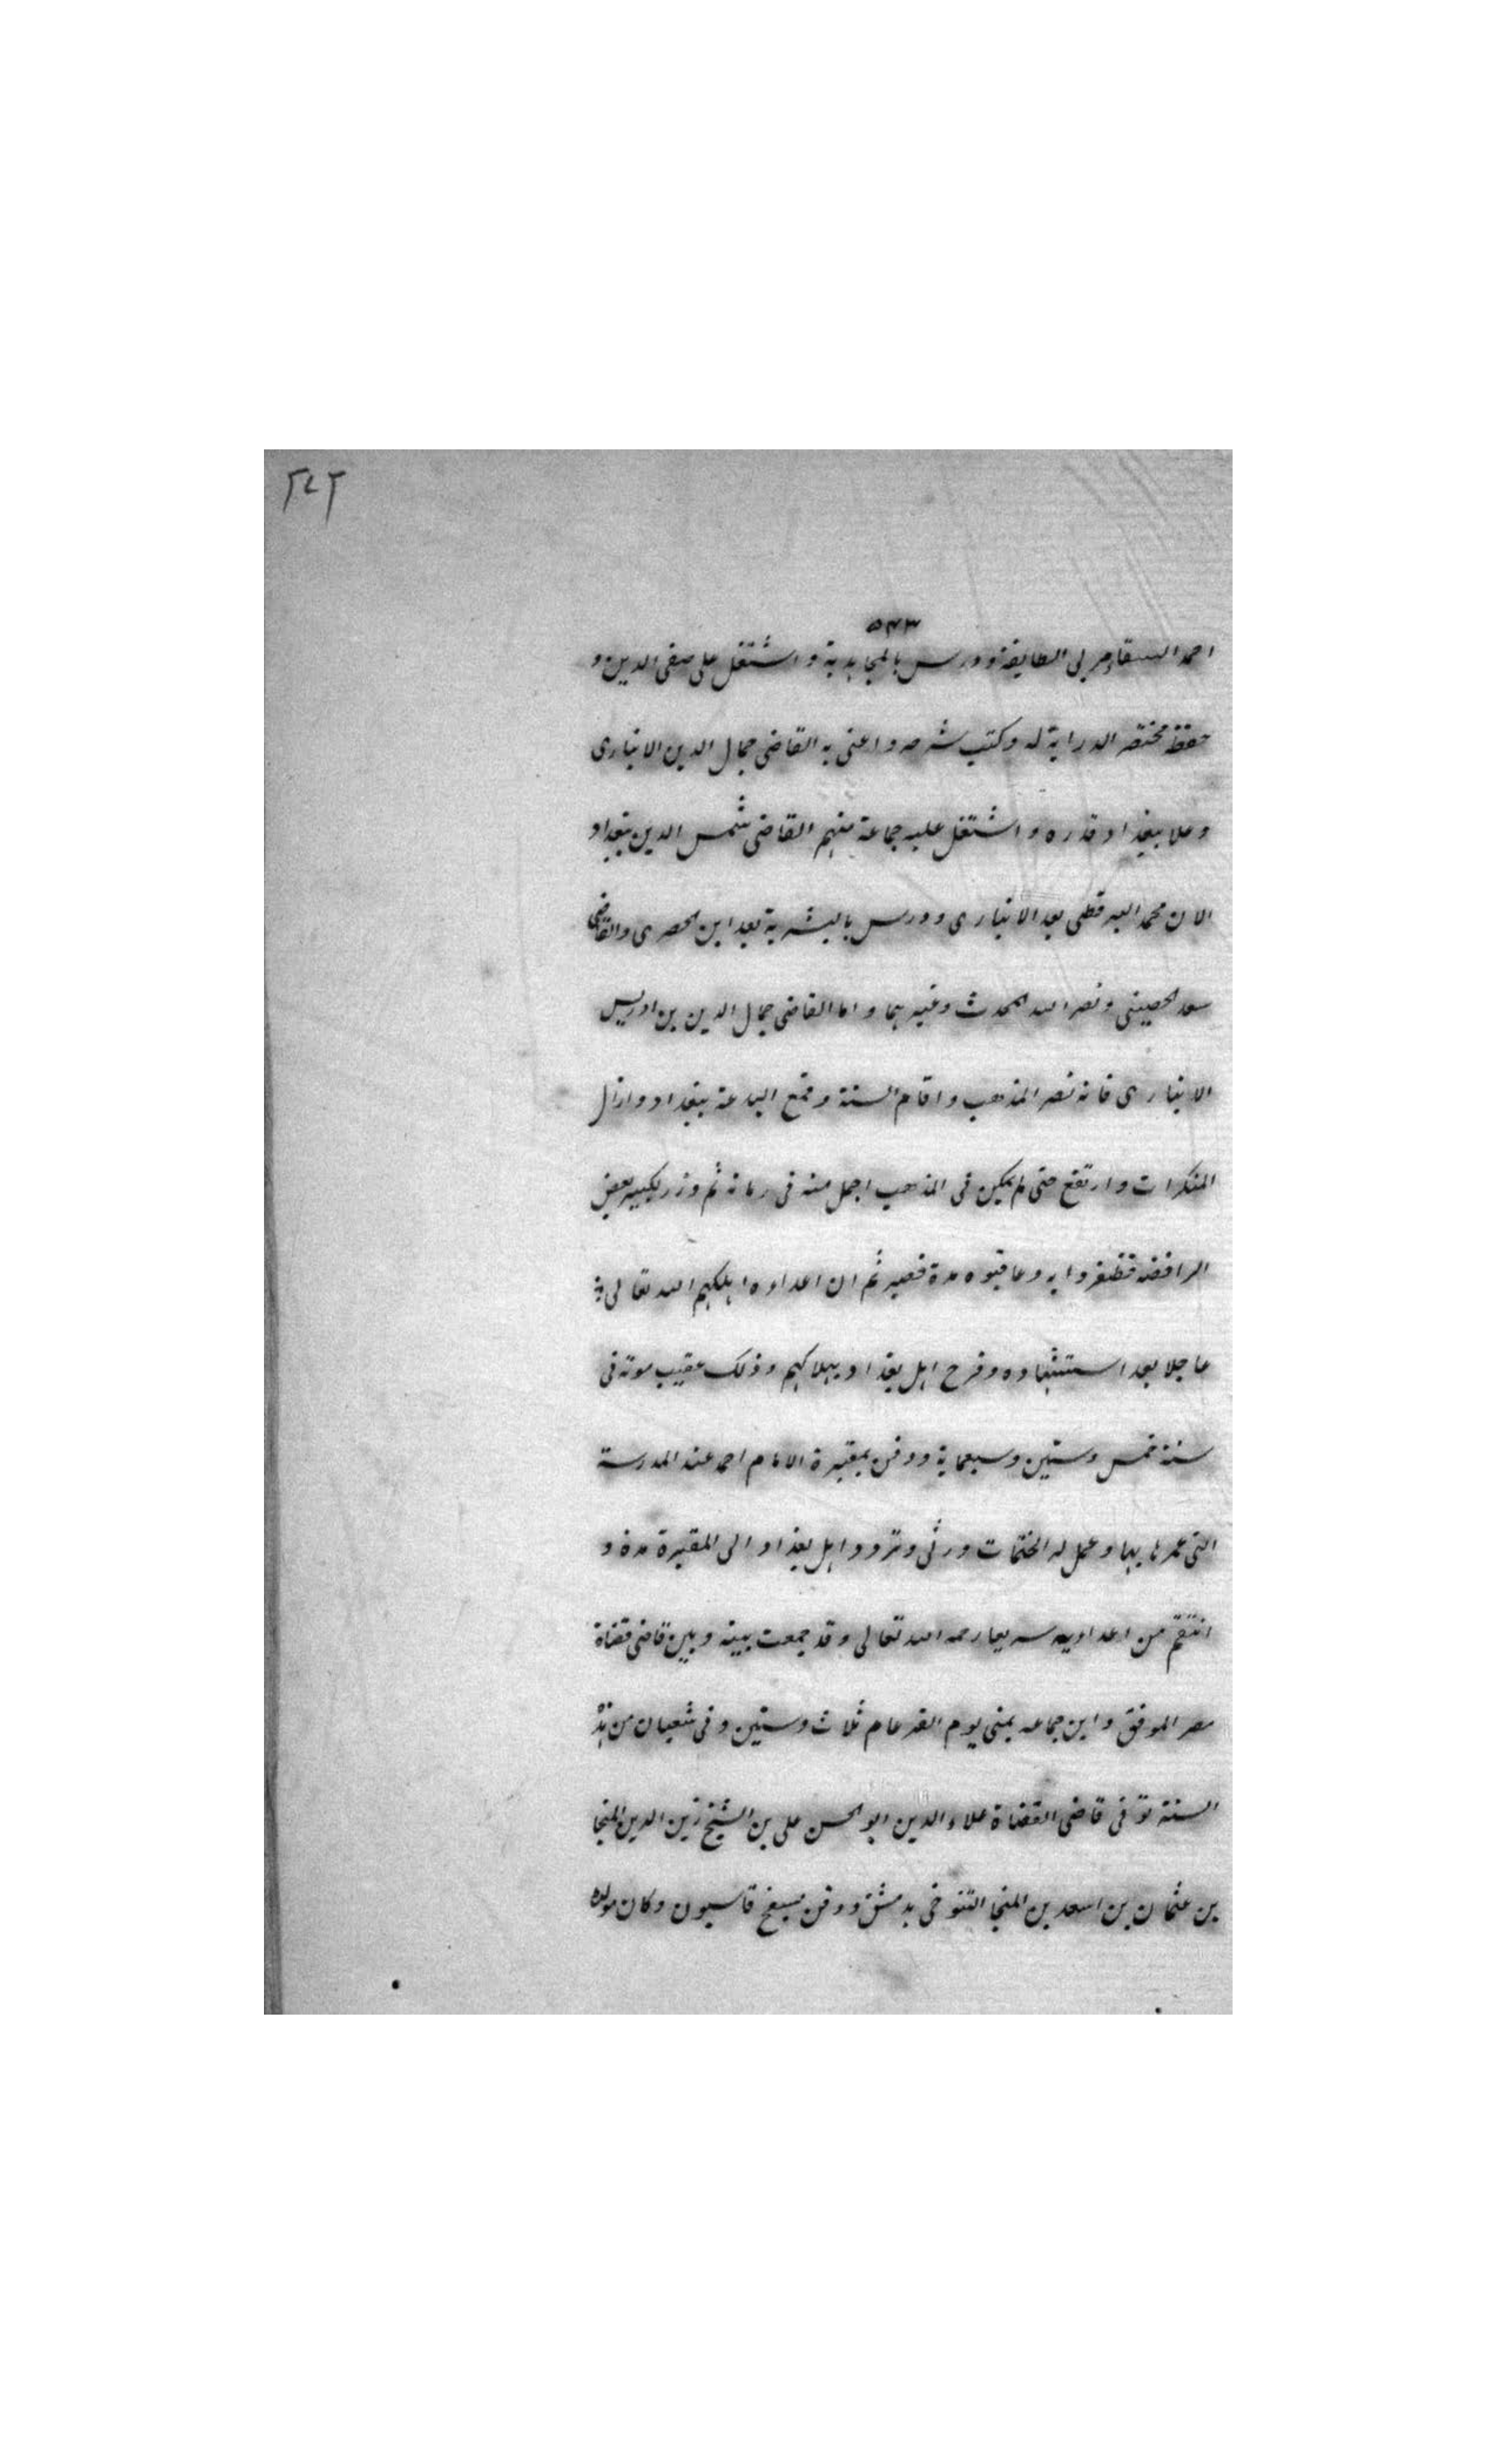 ٢٤٢
٥٤٣
احمد السقا مربى الطايفة ودرس بالمجاهدية واشتغل على صفى الدين و
حفظ مختصر الدراية له وكتب شرحه واعنى به القاضى جمال الدين الانبارى
وعلا ببغداد قدره واشتغل عليه جماعة منهم القاضى شمس الدين ببغداد
الان محمد البرفطى بعد الانبارى ودرس بالبشرية بعد ابن الحصرى والقاضى
سعد الحصينى ونصر الله المحدث وغيرهما واما القاضى جمال الدين بن ادريس
الانبارى فانه نصر المذهب واقام السنة وقمع البدعة ببغداد وازال
المنكرات وارتفع حتى لم يكن فى المذهب اجمل منه فى زمانه ثم وزر لكبير بعض
الرافضه فظفروا به وعاقبوه مدة فصبر ثم ان اعداوه اهلكهم الله تعالى
عاجلا بعد استشهاده وفرح اهل بغداد بهلاكهم وذلك عقيب موته فى
سنة خمس وستين وسبعماية ودفن بمقبرة الامام احمد عند المدرسة
التى عمرها بها وعمل له الختمات ورثى وتردد اهل بغداد الى المقبرة مدة و
انتقم من اعداويه سريعا رحمه الله تعالى وقد جمعت بينه وبين قاضى قضاة
مصر الموفق وابن جماعه بمنى يوم القر عام ثلاث وستين وفى شعبان من هذه
السنة توفى قاضى القضاة علاء الدين ابو الحسن على بن الشيخ زين الدين المنجا
بن عثمان بن اسعد بن المنجا التنوخى بدمشق ودفن بسفح قاسيون وكان مولده